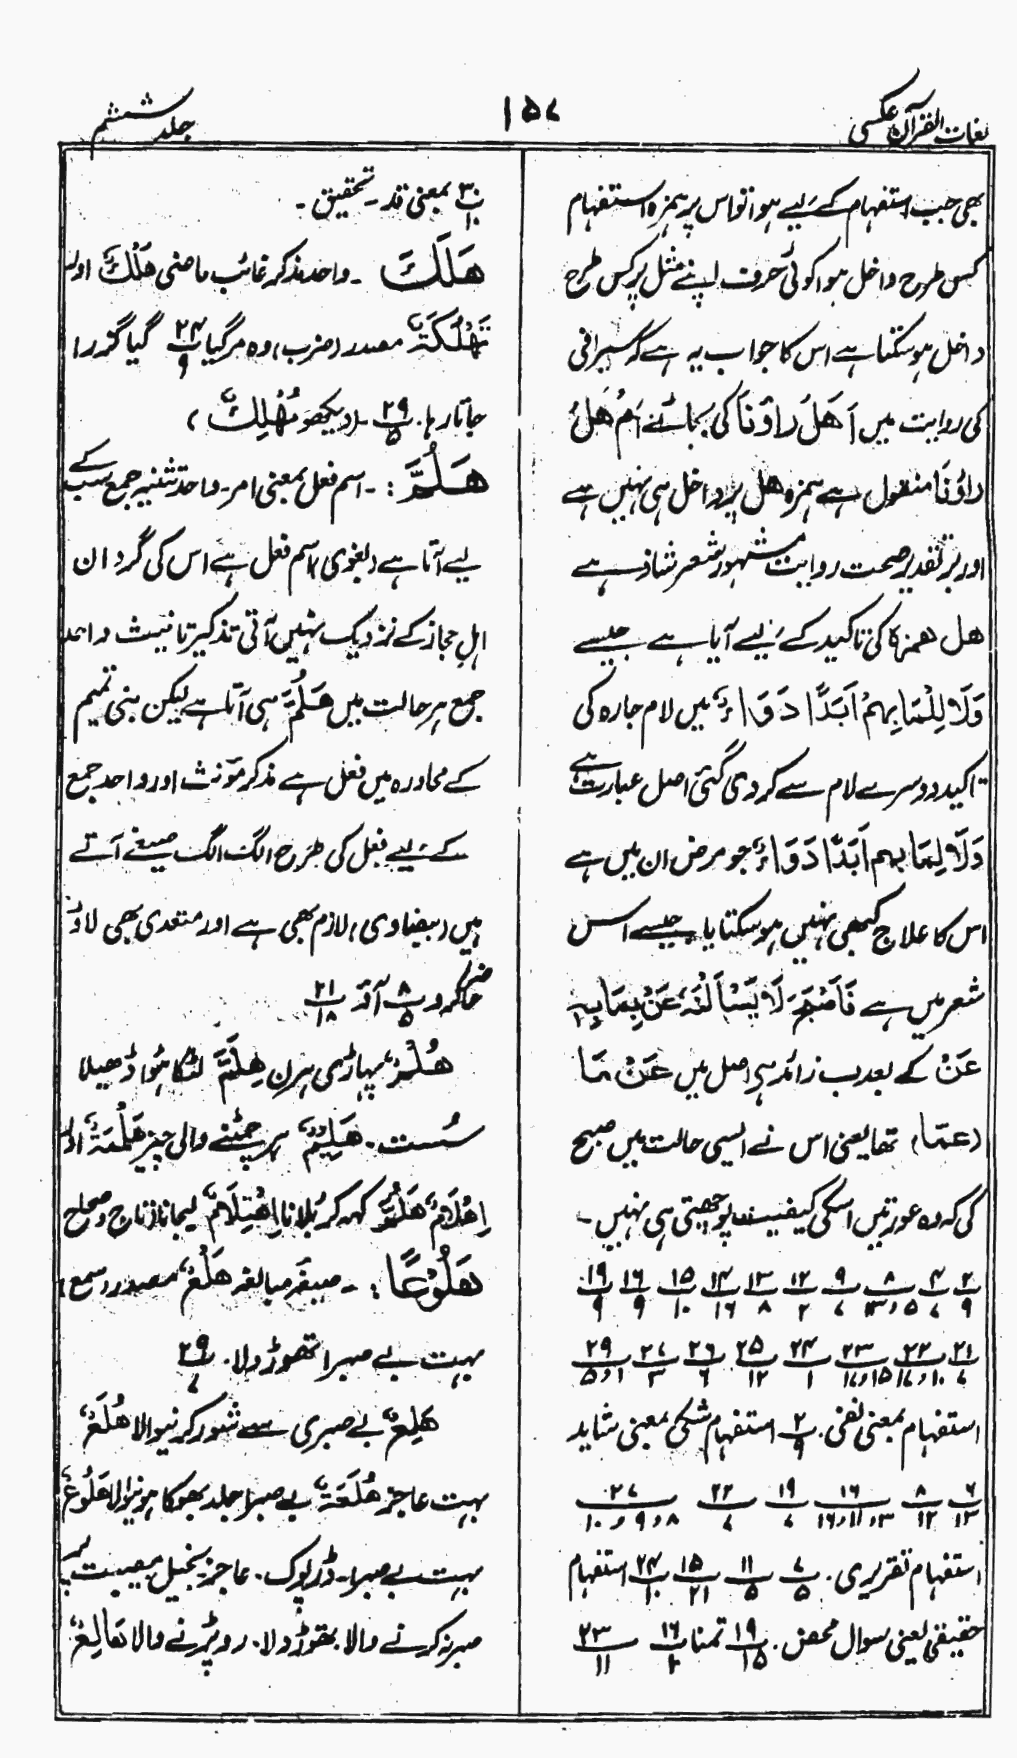 لغات القرآن عکسی
۱۵۷
جلد ششم
بھی جب استفہام کے لیے ہوا تو اس پر ہمزہ استفہام
کس طرح داخل ہوا کوئی حرف اپنے مثل پر کس طرح
داخل ہو سکتا ہے اس کا جواب یہ ہے کہ سیرافی
کی روایت میں اَهَلْ رَاوْنَا کی بجائے اَمْ هَلْ
رَاوْنَا منقول ہے ہمزہ هل پر داخل ہی نہیں ہے
اور بر تقدیر صحت روایت مشہور شعر شاذ ہے
هل همزہ کی تاکید کے لیے آیا ہے جیسے
وَلَا لِلْمَا بِهِمْ اَبَدًا دَوَاءٌ میں لام جارہ کی
تاکید دوسرے لام سے کر دی گئی اصل عبارت ہے
وَلَا لِمَا بهم اَبَدًا دَوَاءٌ جو مرض ان میں ہے
اس کا علاج کبھی نہیں ہو سکتا یا جیسے اس
شعر میں ہے فَاَصْبَحْنَ لَا يَسْاَلْنَهٗ عَنْ بِمَا بِهٖ
عَنْ کے بعد ب زائد ہے اصل میں عَنْ مَا
(عمّا) تھا یعنی اس نے ایسی حالت میں صبح
کی کہ وہ عورتیں اسکی کیفیت پوچھتی ہی نہیں۔
۲/۹ ۴/۷ ۸/۵،۱۳ ۹/۷ ۱۲/۲ ۱۳/۸ ۱۴/۱۶ ۱۵/۱۰ ۱۶/۹ ۱۹/۹
۲۱/۷ ۲۲/۱۰،۱۷ ۲۳/۱۵،۱۷ ۲۴/۱ ۲۵/۱۲ ۲۶/۶ ۲۷/۳ ۲۹/۱،۵
استفہام بمعنی نفی۔ ۲/۹ استفہام شکی بمعنی شاید
۶/۱۳ ۸/۱۲ ۱۶/۱۳،۱۱،۱۶ ۱۹/۷ ۲۲/۷ ۲۷/۸،۹،۱۰
استفہام تقریری۔ ۷/۵ ۱۱/۵ ۱۵/۲۱ ۲۴/۱۰ استفہام
حقیقی یعنی سوال محض۔ ۱۹/۱۵ تمنا ۱۶/۲ ۲۳/۱۱
۳۰/۱۰ بمعنی قد۔ تحقیق۔
هَلَكَ ۔ واحد مذکر غائب ماضی هَلْكٌ اور
تَهْلُكَةٌ مصدر (ضرب) وہ مر گیا ۲۴/۹ گیا گزرا
جاتا رہا۔ ۲۹/۵۔ (دیکھو مُهْلِكٌ)
هَلُمَّ :۔ اسم فعل بمعنی امر۔ واحد تثنیہ جمع سب کے
لیے آتا ہے (لغوی) اسم فعل ہے اس کی گردان
اہلِ حجاز کے نزدیک نہیں آتی تذکیر تانیث واحد
جمع ہر حالت میں هَلُمَّ ہی آتا ہے لیکن بنی تمیم
کے محاورہ میں فعل ہے مذکر مؤنث اور واحد جمع
کے لیے فعل کی طرح الگ الگ صیغے آتے
ہیں (بیضاوی) لازم بھی ہے اور متعدی بھی لاؤ
حاضر کرو ۸/۵ آؤ ۲۱/۱۸
هُلُمٌ پہاڑی ہرن هِلَمٌّ لٹکا ہوا ڈھیلا
سُست۔ هَلِيْمٌ ہر چمٹنے والی چیز هَلْمَةٌ اور
اِهْلَامٌ هَلُمَّ کہہ کر بلانا اِهْتِلَامٌ لیجانا (تاج و صحاح)
هَلُوْعًا :۔ صیغہ مبالغہ هَلَعٌ مصدر (سمع)
بہت بے صبرا تھوڑدلا۔ ۲۹/۷
هَلِعٌ بے صبری سے شور کرنیوالا هُلَعٌ
بہت عاجز هُلَعَةٌ بے صبرا جلد بھوکا ہونیوالا هَلُوْعٌ
بہت بے صبرا۔ ڈرپوک۔ عاجز۔ بخیل مصیبت پر
صبر نہ کرنے والا بھوڑدلا۔ رو پڑنے والا هَالِعٌ